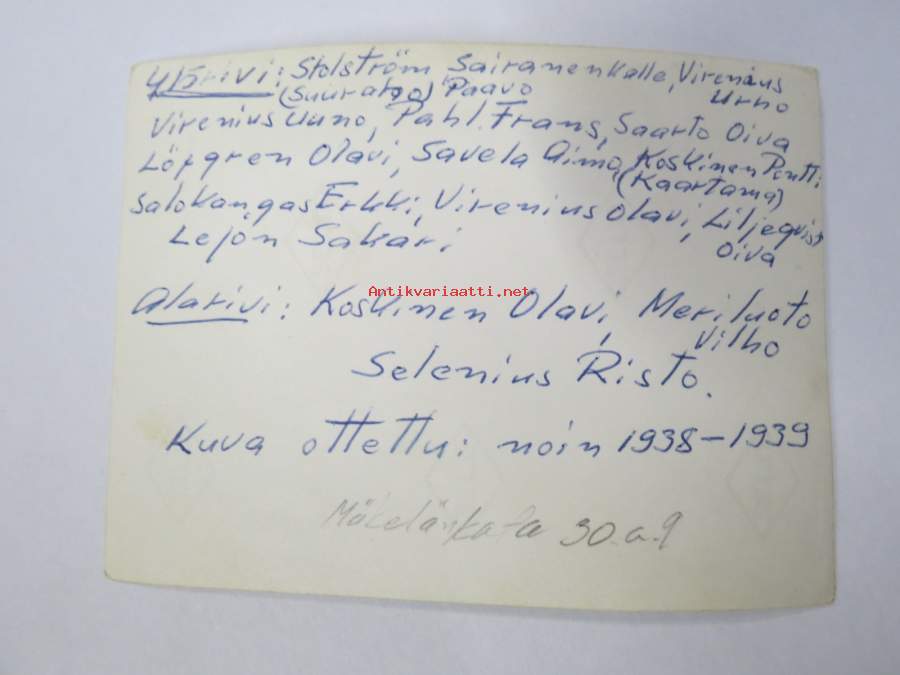 Ylärivi: Stolström Sairanen Kalle, Virenius
(Suuratgo) Paavo Urho
Virenius Uuno, Pahl. Frans, Saarto Oiva
Löfgren Olavi, Savela Aimo, Koskinen Pentti
(Kaartama)
Salokangas Erkki, Virenius Olavi, Liljeqvist
Lejon Sakari Oiva
Antikvariaatti.net
Alarivi: Koskinen Olavi, Meriluoto
Vilho
Selenius Risto.
Kuva otettu: noin 1938-1939
Mäkelänkatu 30.a.9